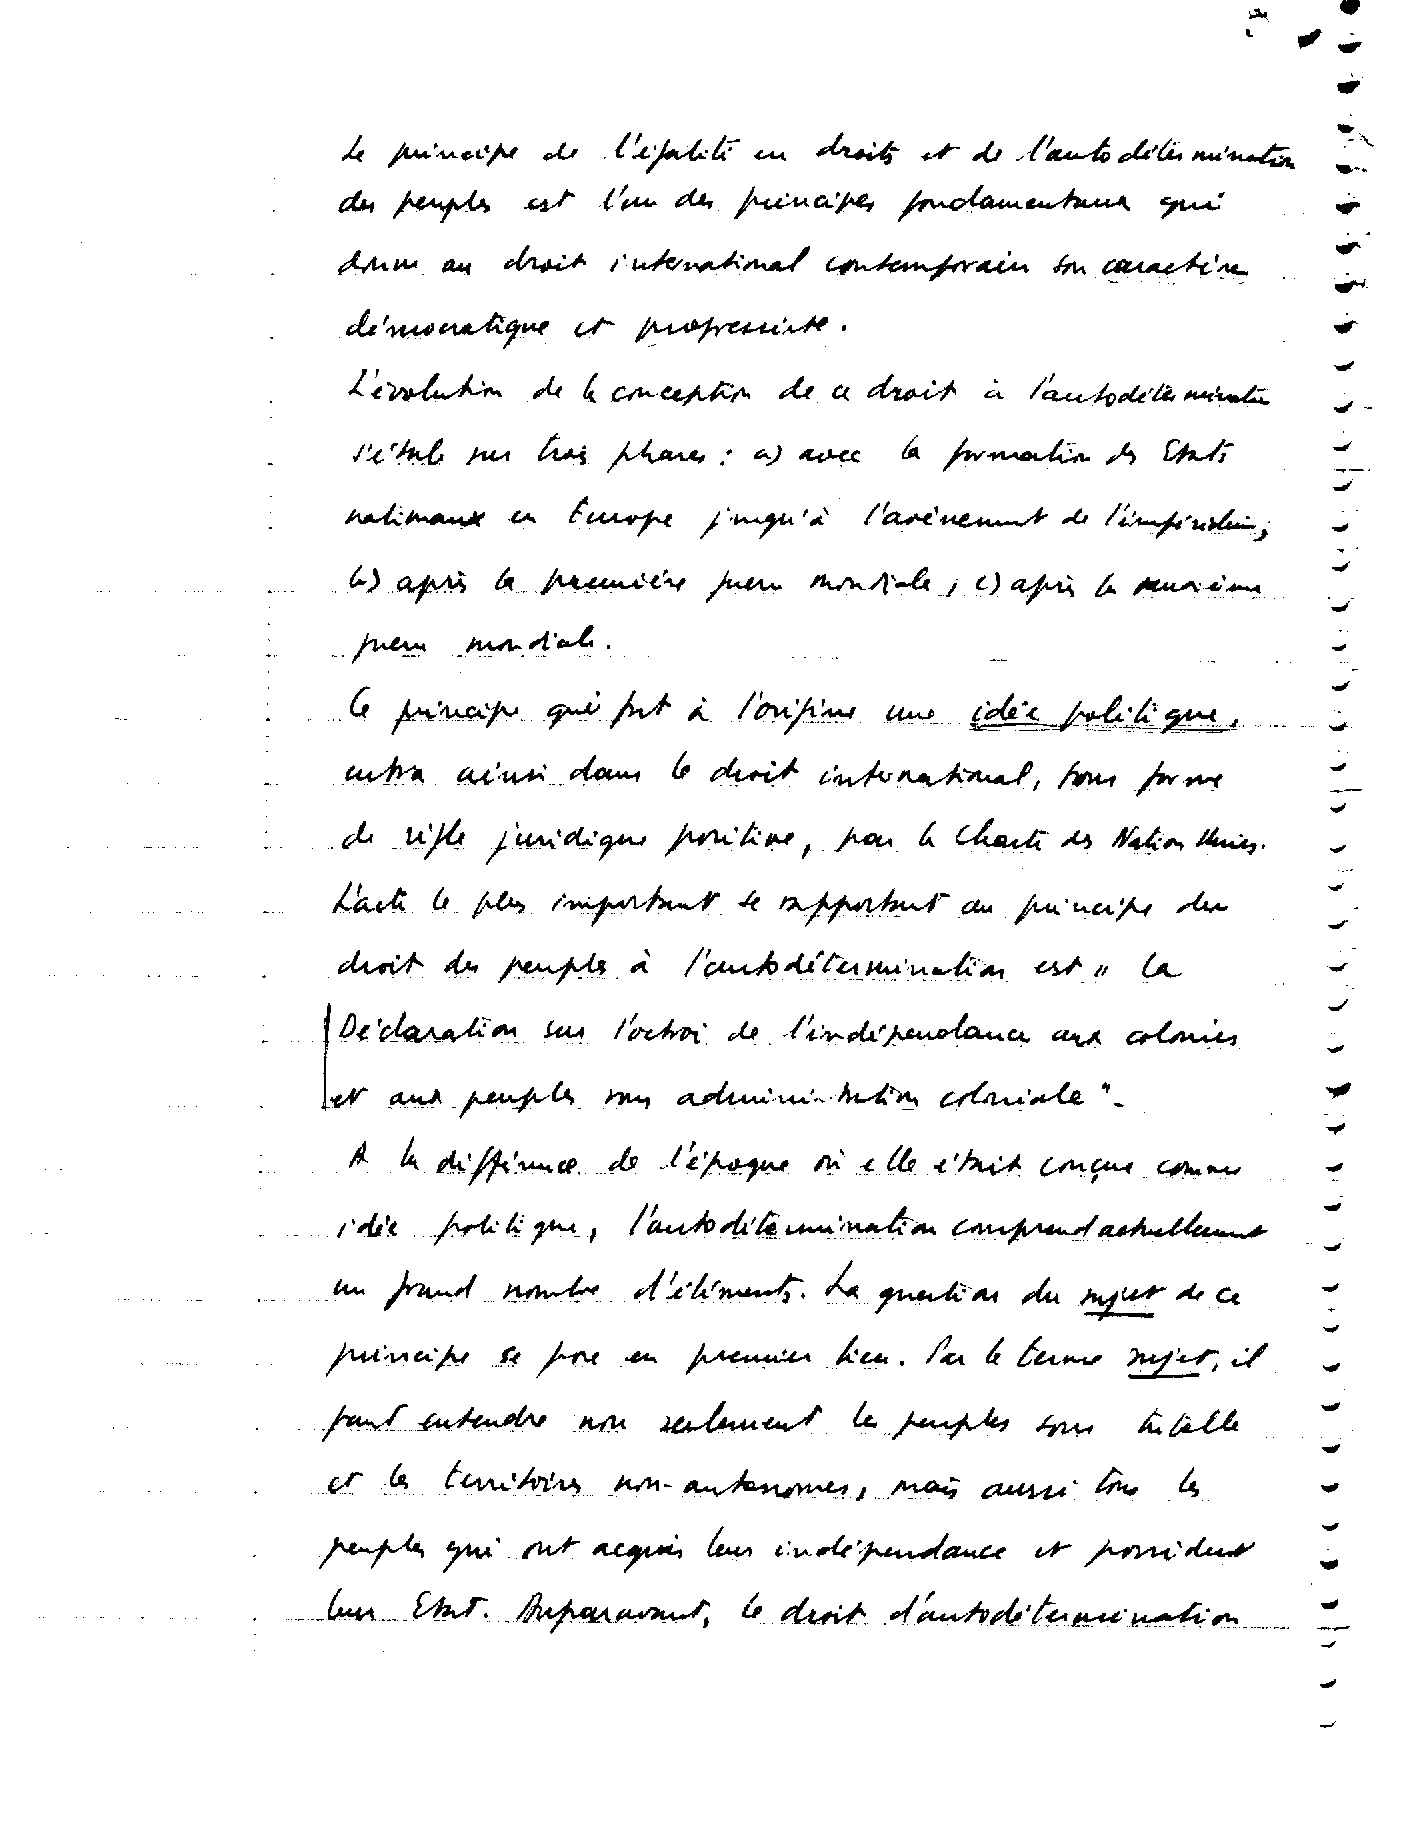 Le principe de l'égalité en droits et de l'autodétermination
des peuples est l'un des principes fondamentaux qui
donne au droit international contemporain son caractère
démocratique et progressiste.
L'évolution de la conception de ce droit à l'autodétermination
s'étale sur trois phases : a) avec la formation des Etats
nationaux en Europe jusqu'à l'avènement de l'impérialisme,
b) après la première guerre mondiale, c) après la deuxième
guerre mondiale.
Ce principe qui fut à l'origine une idée politique,
entra ainsi dans le droit international, sous forme
de règle juridique positive, par la Charte des Nations Unies.
L'acte le plus important se rapportant au principe du
droit des peuples à l'autodétermination est " la
Déclaration sur l'octroi de l'indépendance aux colonies
et aux peuples sous administration coloniale".
A la différence de l'époque où elle était conçue comme
idée politique, l'autodétermination comprend actuellement
un grand nombre d'éléments. La question du sujet de ce
principe se pose en premier lieu. Par le terme sujet, il
faut entendre non seulement les peuples sous tutelle
et les territoires non-autonomes, mais aussi tous les
peuples qui ont acquis leur indépendance et possèdent
leur Etat. Auparavant, le droit d'autodétermination